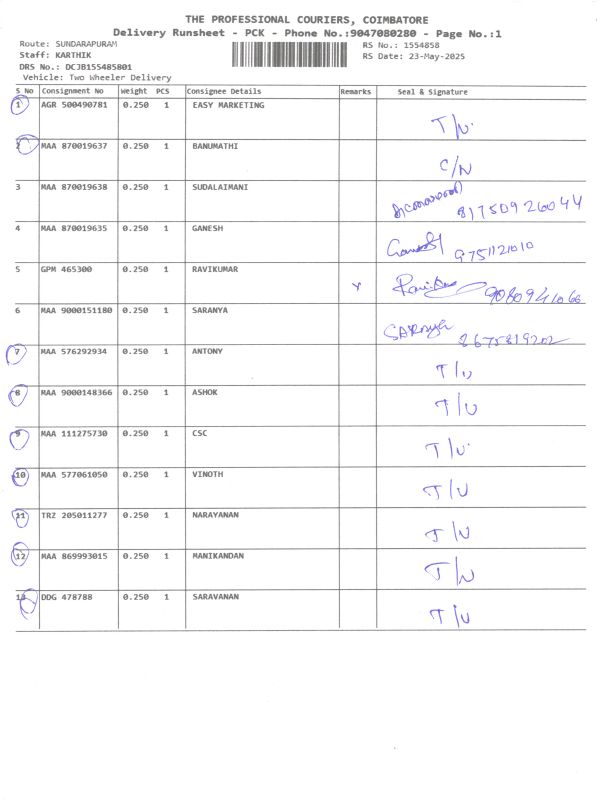 THE PROFESSIONAL COURIERS, COIMBATORE
Delivery Runsheet - PCK - Phone No.:9047080280 - Page No.:1
Route: SUNDARAPURAM
RS No.: 1554858
Staff: KARTHIK
RS Date: 23-May-2025
DRS No.: DCJB155485801
Vehicle: Two Wheeler Delivery
S No Consignment No Weight PCS Consignee Details Remarks Seal & Signature
1 AGR 500490781 0.250 1 EASY MARKETING
T/U
2 MAA 870019637 0.250 1 BANUMATHI
C/N
3 MAA 870019638 0.250 1 SUDALAIMANI
81750926044
4 MAA 870019635 0.250 1 GANESH
9751121010
5 GPM 465300 0.250 1 RAVIKUMAR
Ravikumar 9080941066
6 MAA 9000151180 0.250 1 SARANYA
SARANYA 8675819202
7 MAA 576292934 0.250 1 ANTONY
T/U
8 MAA 9000148366 0.250 1 ASHOK
T/U
9 MAA 111275730 0.250 1 CSC
T/U
10 MAA 577061050 0.250 1 VINOTH
T/U
11 TRZ 205011277 0.250 1 NARAYANAN
T/U
12 MAA 869993015 0.250 1 MANIKANDAN
T/U
13 DDG 478788 0.250 1 SARAVANAN
T/U